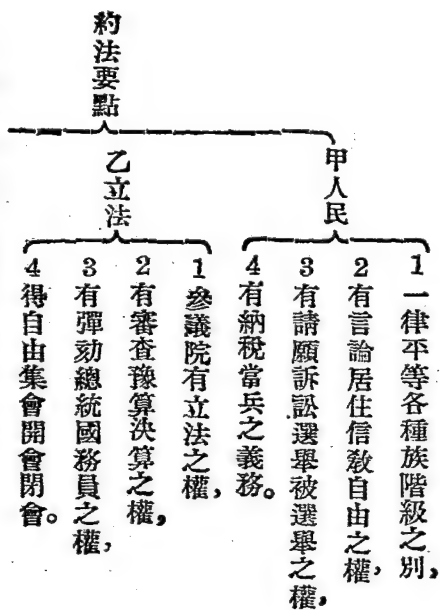 約法要點
甲人民
1 一律平等各種族階級之別，
2 有言論居住信敎自由之權，
3 有請願訴訟選舉被選舉之權，
4 有納稅當兵之義務。
乙立法
1 參議院有立法之權，
2 有審查豫算決算之權，
3 有彈劾總統國務員之權，
4 得自由集會開會閉會。